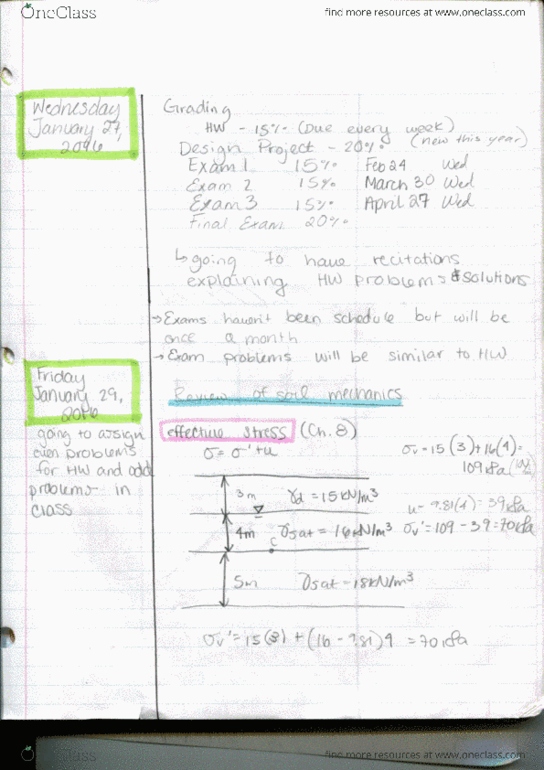 OneClass
find more resources at www.oneclass.com
Wednesday
January 27,
2016
Grading
HW - 15% (Due every week)
Design Project - 20% (new this year)
Exam 1 15% Feb 24 Wed
Exam 2 15% March 30 Wed
Exam 3 15% April 27 Wed
Final Exam 20%
↳ going to have recitations
explaining HW problems & solutions
→ Exams haven't been schedule but will be
once a month
→ Exam problems will be similar to HW
Friday
January 29,
2016
going to assign
even problems
for HW and odd
problems in
class
Review of soil mechanics
effective stress (Ch. 8)
σ = σ' + u
σv = 15(3) + 16(4) =
109 kPa
3m γd = 15 kN/m³
u = 9.81(4) = 39 kPa
4m γsat = 16 kN/m³
σv' = 109 - 39 = 70 kPa
C
5m γsat = 18 kN/m³
σv' = 15(3) + (16 - 9.81)4 = 70 kPa
OneClass
find more resources at www.oneclass.com